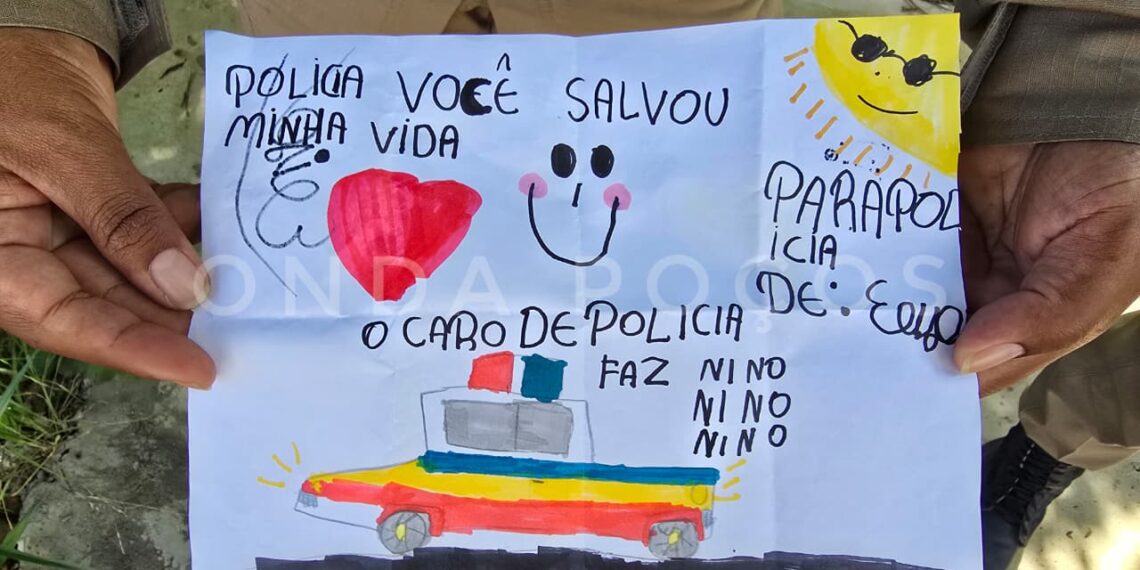 POLICIA VOCÊ SALVOU
MINHA VIDA
PARAPOL
ICIA
DE:
O CARO DE POLICIA
FAZ NINO
NINO
NINO
ONDA POÇOS